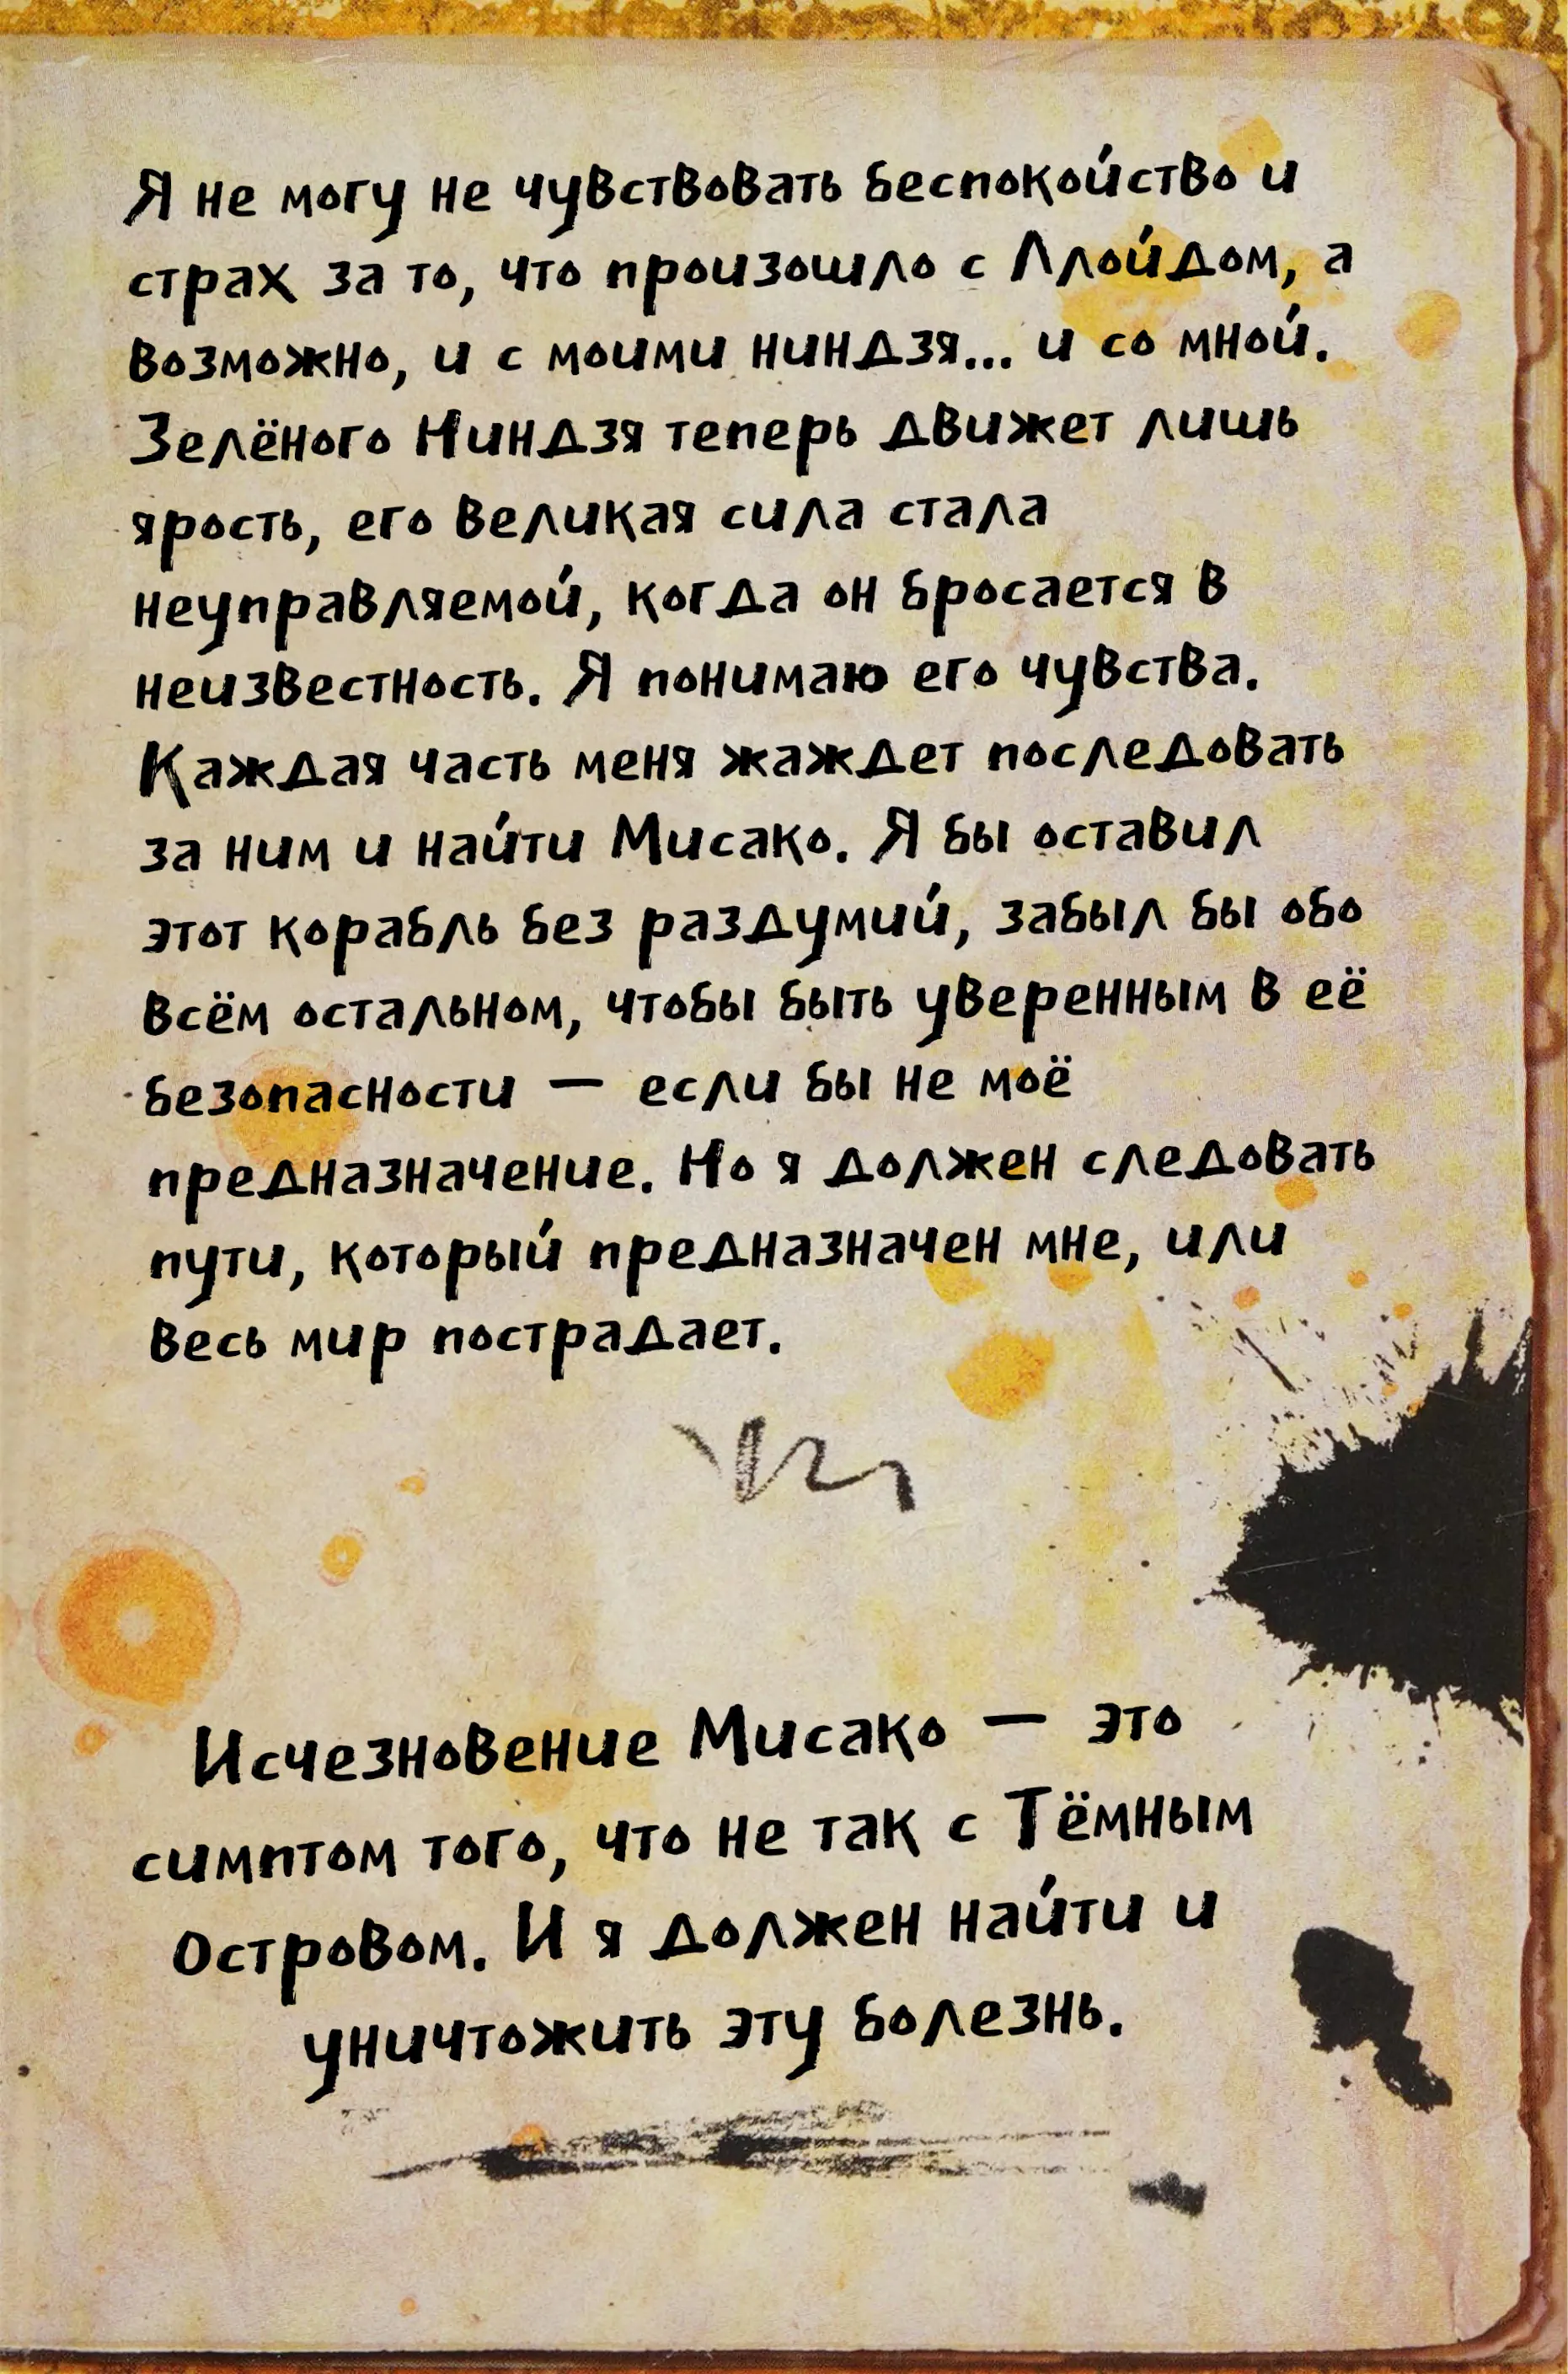 Я не могу не чувствовать беспокойство и
страх за то, что произошло с Ллойдом, а
возможно, и с моими ниндзя... и со мной.
Зелёного Ниндзя теперь движет лишь
ярость, его великая сила стала
неуправляемой, когда он бросается в
неизвестность. Я понимаю его чувства.
Каждая часть меня жаждет последовать
за ним и найти Мисако. Я бы оставил
этот корабль без раздумий, забыл бы обо
всём остальном, чтобы быть уверенным в её
безопасности — если бы не моё
предназначение. Но я должен следовать
пути, который предназначен мне, или
весь мир пострадает.
Исчезновение Мисако — это
симптом того, что не так с Тёмным
Островом. И я должен найти и
уничтожить эту болезнь.